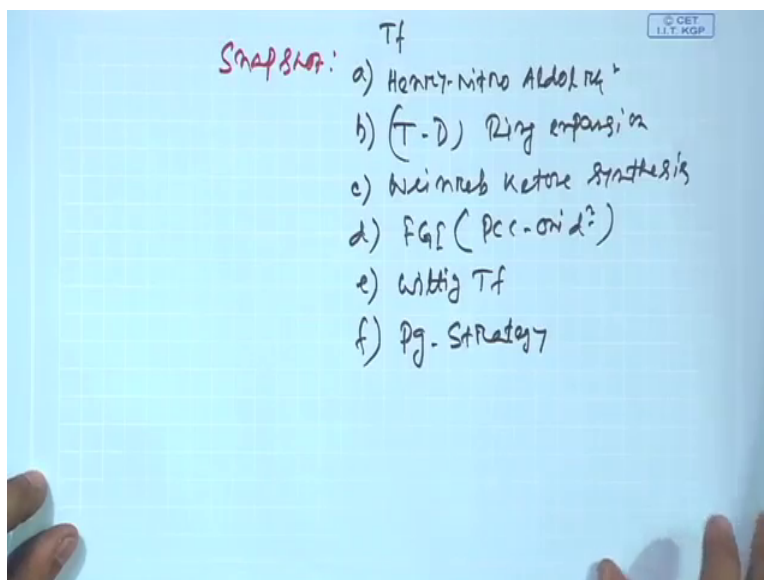 Tf
© CET
I.I.T. KGP
Snapshot:
a) Henry-nitro Aldol rxⁿ
b) (T-D) Ring expansion
c) Weinreb Ketone synthesis
d) FGI (PCC-oxidⁿ)
e) Wittig Tf
f) Pg-Strategy